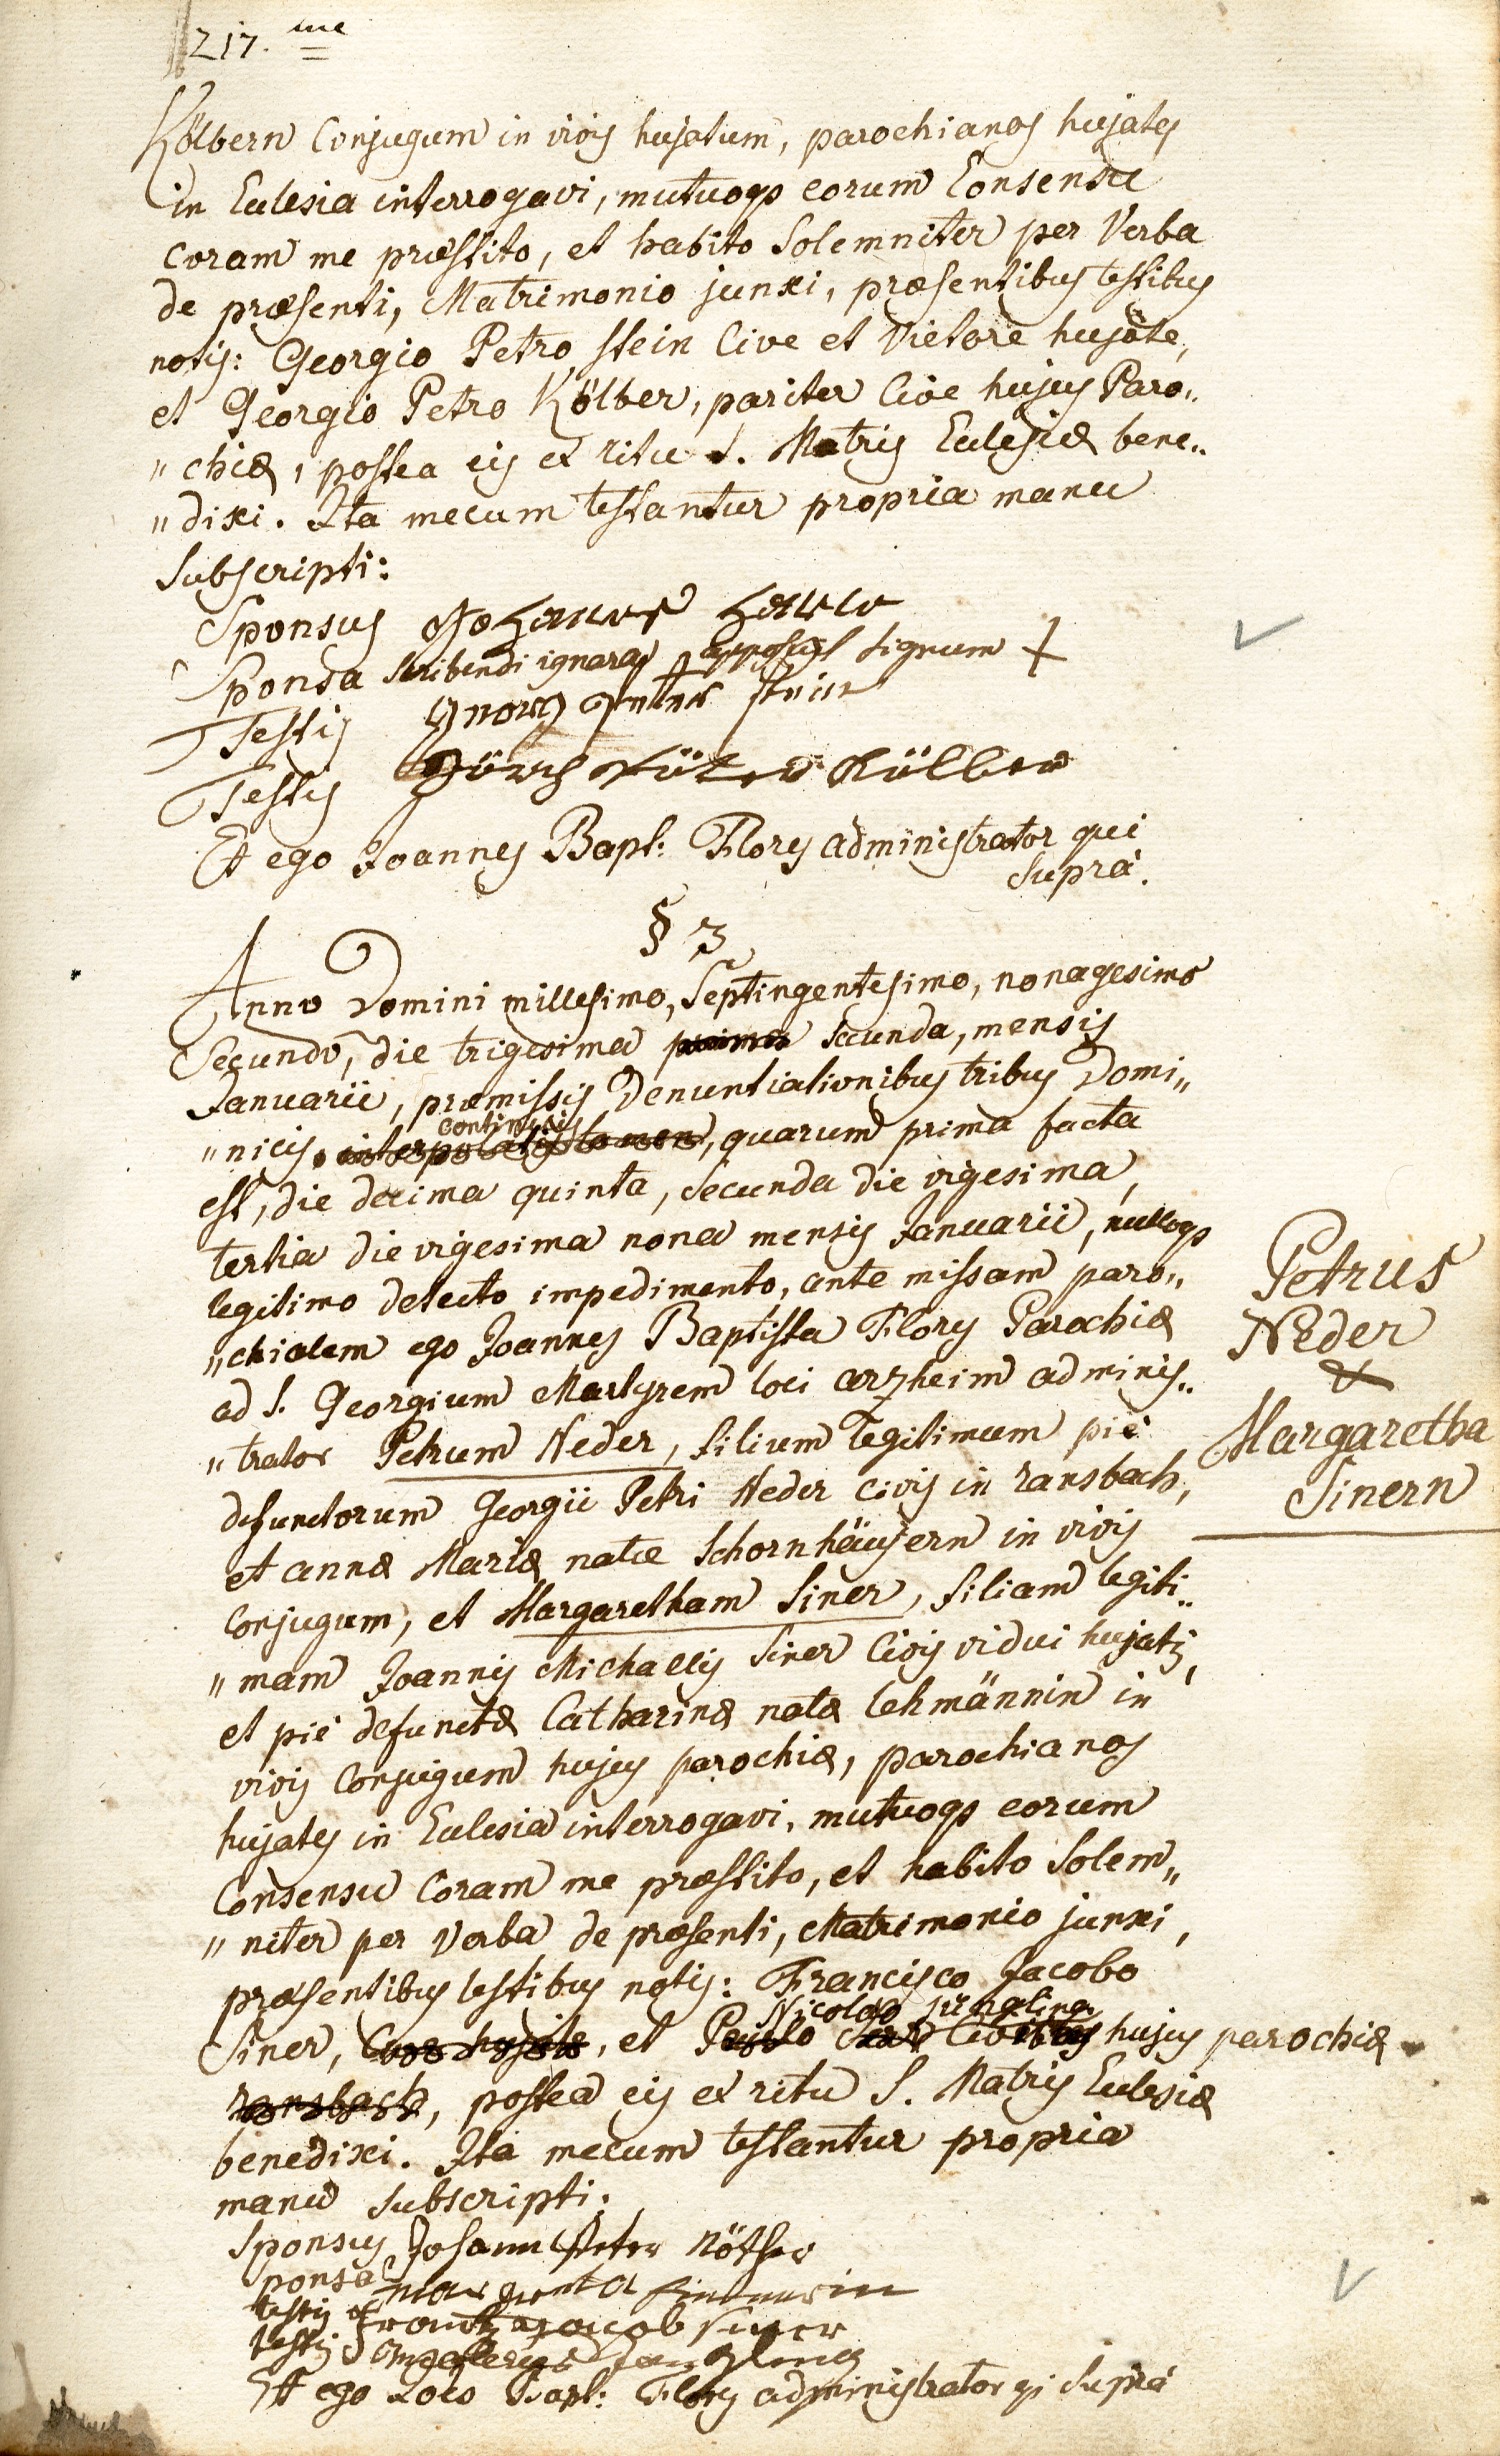 217. me
Kölbern Conjugum in vivis hujatum, parochianos hujates
in Eclesia interrogavi, mutuoqs eorum Consensu
coram me præstito, et habito Solemniter per Verba
de præsenti, Matrimonio junxi, præsentibus testibus
notis: Georgio Petro Stein Cive et Vietore hujate,
et Georgio Petro Kölber, pariter Cive hujus Paro„
„chiæ, postea eis ex ritu S. Matris Eclesiæ bene„
„dixi. Ita mecum testantur propria manu
Subscripti:
Sponsus Johannes
Sponsa Scribendi ignara apposuit Signum +
Testis Georg Peter Stein
Testis Görch Kölber
Et ego Joannes Bapt: Flory administrator qui
Supra.
§ 3
Anno Domini millesimo, Septingentesimo, nonagesimo
Secundo, die trigesima prima Secunda, mensis
Januarii, præmissis Denuntiationibus tribus Domi„
continuis
„nicis, interpolatis tamen, quarum prima facta
est, die decima quinta, Secunda die vigesima,
tertia die vigesima nona mensis Januarii, nulloqs
legitimo detecto impedimento, ante missam paro„
„chialem ego Joannes Baptista Flory Parochiæ
ad S. Georgium Martyrem loci arzheim adminis„
„trator Petrum Neder, filium legitimum piè
defunctorum Georgii Petri Neder Civis in ransbach,
et annæ Mariæ natæ Schornhäusern in vivis
Conjugum, et Margaretham Siner, filiam legiti„
„mam Joannis Michaelis Siner Civis vidui hujatis,
et piè defunctæ Catharinæ natæ lehmännin in
vivis Conjugum hujus parochiæ, parochianos
hujates in Eclesia interrogavi, mutuoqs eorum
Consensu Coram me præstito, et habito Solem„
„niter per Verba de præsenti, Matrimonio junxi,
præsentibus testibus notis: Francisco Jacobo
Nicolao jüngling
Siner, Cive hujate, et hujus parochiæ
ransbach, postea eis ex ritu S. Matris Eclesiæ
benedixi. Ita mecum testantur propria
manu Subscripti:
Sponsus Johann Peter Nöther
Sponsa
testis Frantz Jacob Siner
testis
Et ego Joes Bapt: Flory administrator qi Supra
Petrus
Neder
&
Margaretha
Sinern